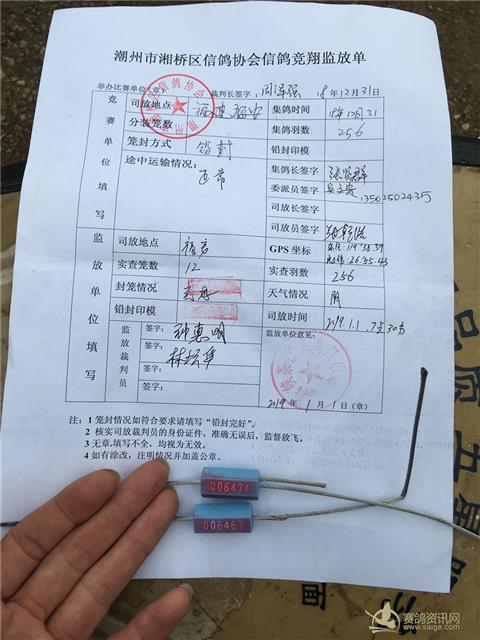 潮州市湘桥区信鸽协会信鸽竞翔监放单
举办比赛单位(章) 裁判长签字: 周泽强 18年12月31日
竞赛单位填写
司放地点 福建福安 集鸽时间 18年12月31
分装笼数 集鸽羽数 256
笼封方式 铅封 铅封印模
途中运输情况: 正常 集鸽长签字
委派员签字 13502502435
司放长签字
司放员签字
监放单位填写
司放地点 福安 GPS 坐标 东经:119°38.39 北纬:26°55.43
实查笼数 12 实查羽数 256
封笼情况 完好 天气情况 阴
铅封印模 司放时间 2019.1.1.7点30分
监放裁判员 签字: 钟惠明 监放单位意见:
签字:
签字:
2019年1月1日(章)
注:1 笼封情况如符合要求请填写“铅封完好”。
2 核实司放裁判员的身份证件,准确无误后,监督放飞。
3 无章.填写不全,均视为无效。
4 如有涂改,注明情况并加盖公章。
006474
006467
赛鸽资讯网
www.saige.com